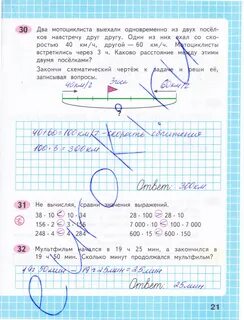 30 Два мотоциклиста выехали одновременно из двух посёлков навстречу друг другу. Один из них ехал со скоростью 40 км/ч, другой — 60 км/ч. Мотоциклисты встретились через 3 ч. Каково расстояние между этими двумя посёлками?
Закончи схематический чертёж к задаче и реши её, записывая вопросы.
40км/ч 3часа 60км/ч
?
40+60=100км/ч - скорость сближения
100·3=300км
Ответ: 300км
31 Не вычисляя, сравни значения выражений.
38 · 10 10 · 34 28 · 100 28 · 10
156 · 2 3 · 156 7 000 · 10 7 000 · 100
238 · 4 4 · 284
32 Мультфильм начался в 19 ч 25 мин, а закончился в 19 ч 50 мин. Сколько минут продолжался мультфильм?
19ч 50мин - 19ч 25мин = 25мин
Ответ: 25мин
21